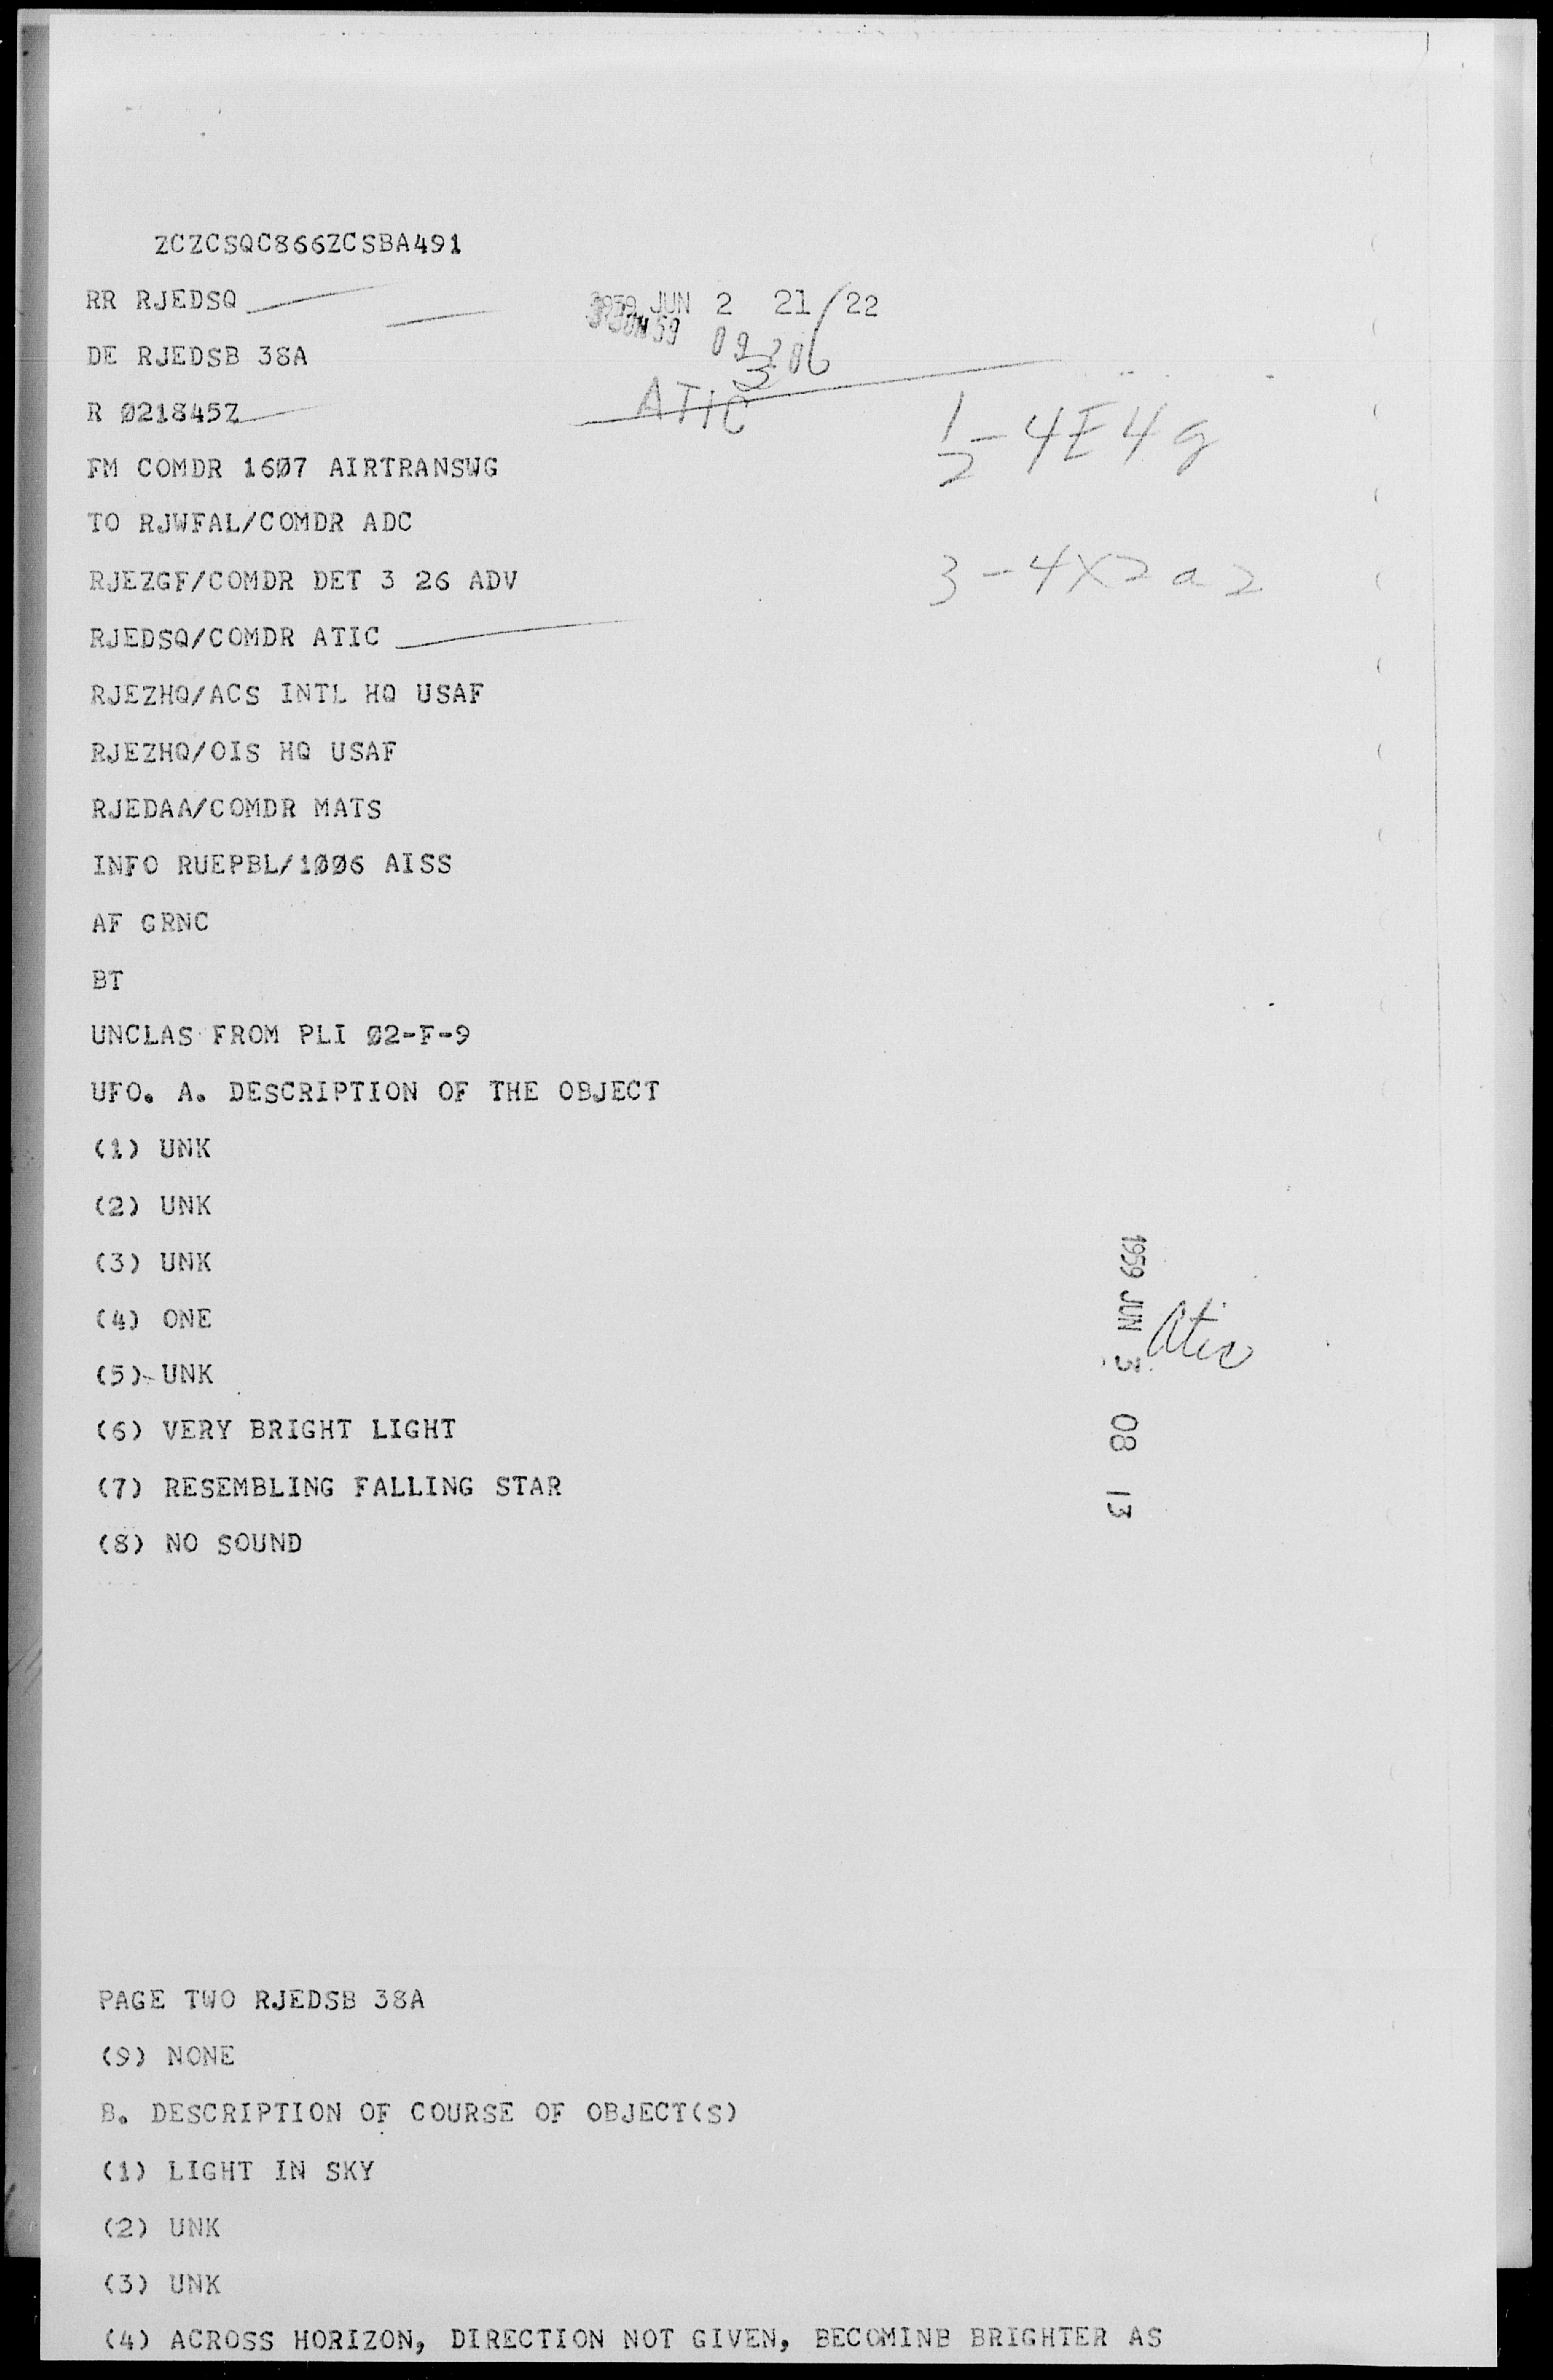 ZCZCSQC866ZCSBA491
RR RJEDSQ
1959 JUN 2 21/22
DE RJEDSB 38A
ATIC
R Ø21845Z
1/2 - 4E4g
FM COMDR 16Ø7 AIRTRANSWG
TO RJWFAL/COMDR ADC
RJEZGF/COMDR DET 3 26 ADV
3 - 4X2a2
RJEDSQ/COMDR ATIC
RJEZHQ/ACS INTL HQ USAF
RJEZHQ/OIS HQ USAF
RJEDAA/COMDR MATS
INFO RUEPBL/1ØØ6 AISS
AF GRNC
BT
UNCLAS FROM PLI Ø2-F-9
UFO. A. DESCRIPTION OF THE OBJECT
(1) UNK
(2) UNK
(3) UNK
(4) ONE
(5) UNK
(6) VERY BRIGHT LIGHT
(7) RESEMBLING FALLING STAR
(8) NO SOUND
1959 JUN 3 08 13
Atic
PAGE TWO RJEDSB 38A
(9) NONE
B. DESCRIPTION OF COURSE OF OBJECT(S)
(1) LIGHT IN SKY
(2) UNK
(3) UNK
(4) ACROSS HORIZON, DIRECTION NOT GIVEN, BECOMINB BRIGHTER AS